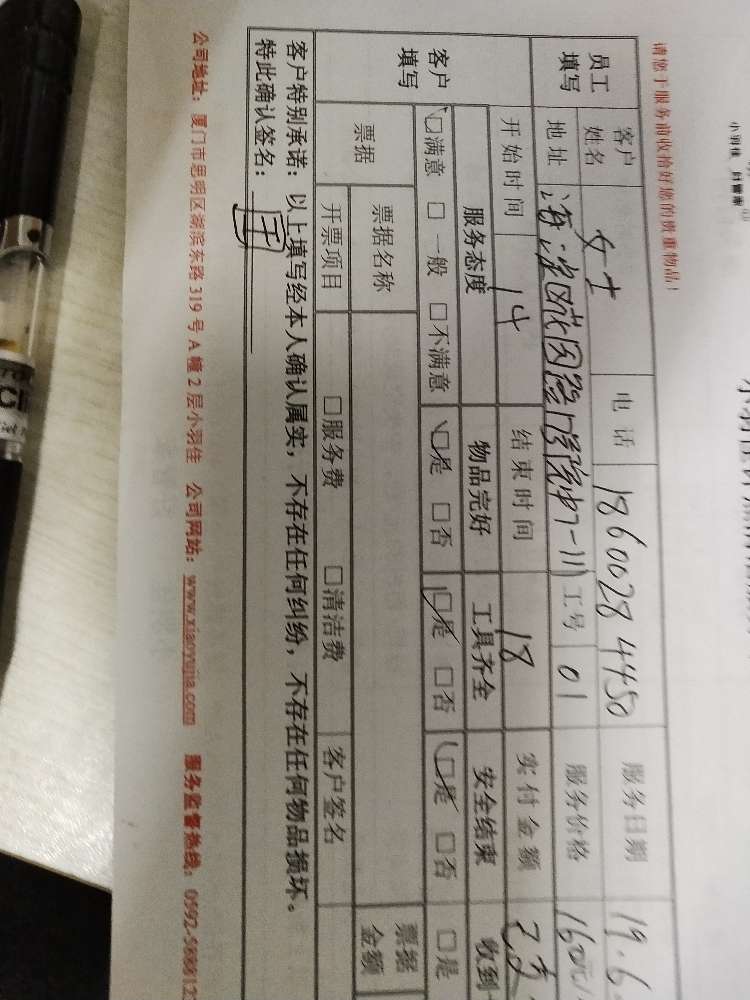 请您于服务前收拾好您的贵重物品!
员工填写 客户姓名 女士 电话 18600284450 服务日期 19.6
地址 海淀区 工号 01 服务价格 160元/
开始时间 14 结束时间 18 实付金额
客户填写 服务态度 物品完好 工具齐全 安全结束 收到
□满意 □一般 □不满意 □是 □否 □是 □否 □是 □否 □是
票据 票据名称 票据金额
开票项目 □服务费 □清洁费 客户签名
客户特别承诺:以上填写经本人确认属实,不存在任何纠纷,不存在任何物品损坏。
特此确认签名: 王
公司地址:厦门市思明区湖滨东路319号A幢2层小羽佳 公司网站:www.xiaoyujia.com 服务监督热线:0592-568812